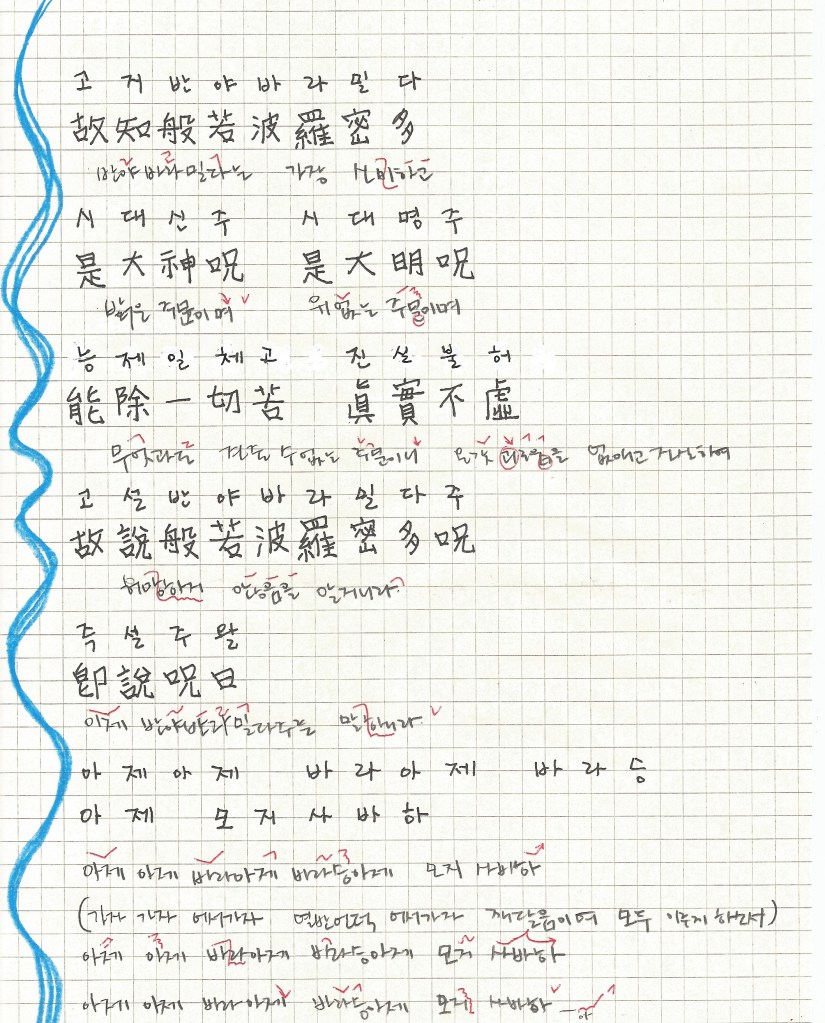 고 지 반 야 바 라 밀 다
故知般若波羅密多
반야바라밀다는 가장 신비하고
시 대 신 주 시 대 명 주
是大神呪 是大明呪
밝은 주문이며 위없는 주문이며
능 제 일 체 고 진 실 불 허
能除一切苦 眞實不虛
무엇과도 견줄 수 없는 주문이니 온갖 괴로움을 없애고
고 설 반 야 바 라 밀 다 주
故說般若波羅密多呪
허망하지 않음을 알지니라
즉 설 주 왈
卽說呪曰
이제 반야바라밀다주를 말하니라
아 제 아 제 바 라 아 제 바 라 승
아 제 모 지 사 바 하
아제 아제 바라아제 바라승아제 모지 사바하
(가자 가자 어서가자 열반언덕 어서가자 깨달음이여 모두 이루지 하소서)
아제 아제 바라아제 바라승아제 모지 사바하
아제 아제 바라아제 바라승아제 모지 사바하 아